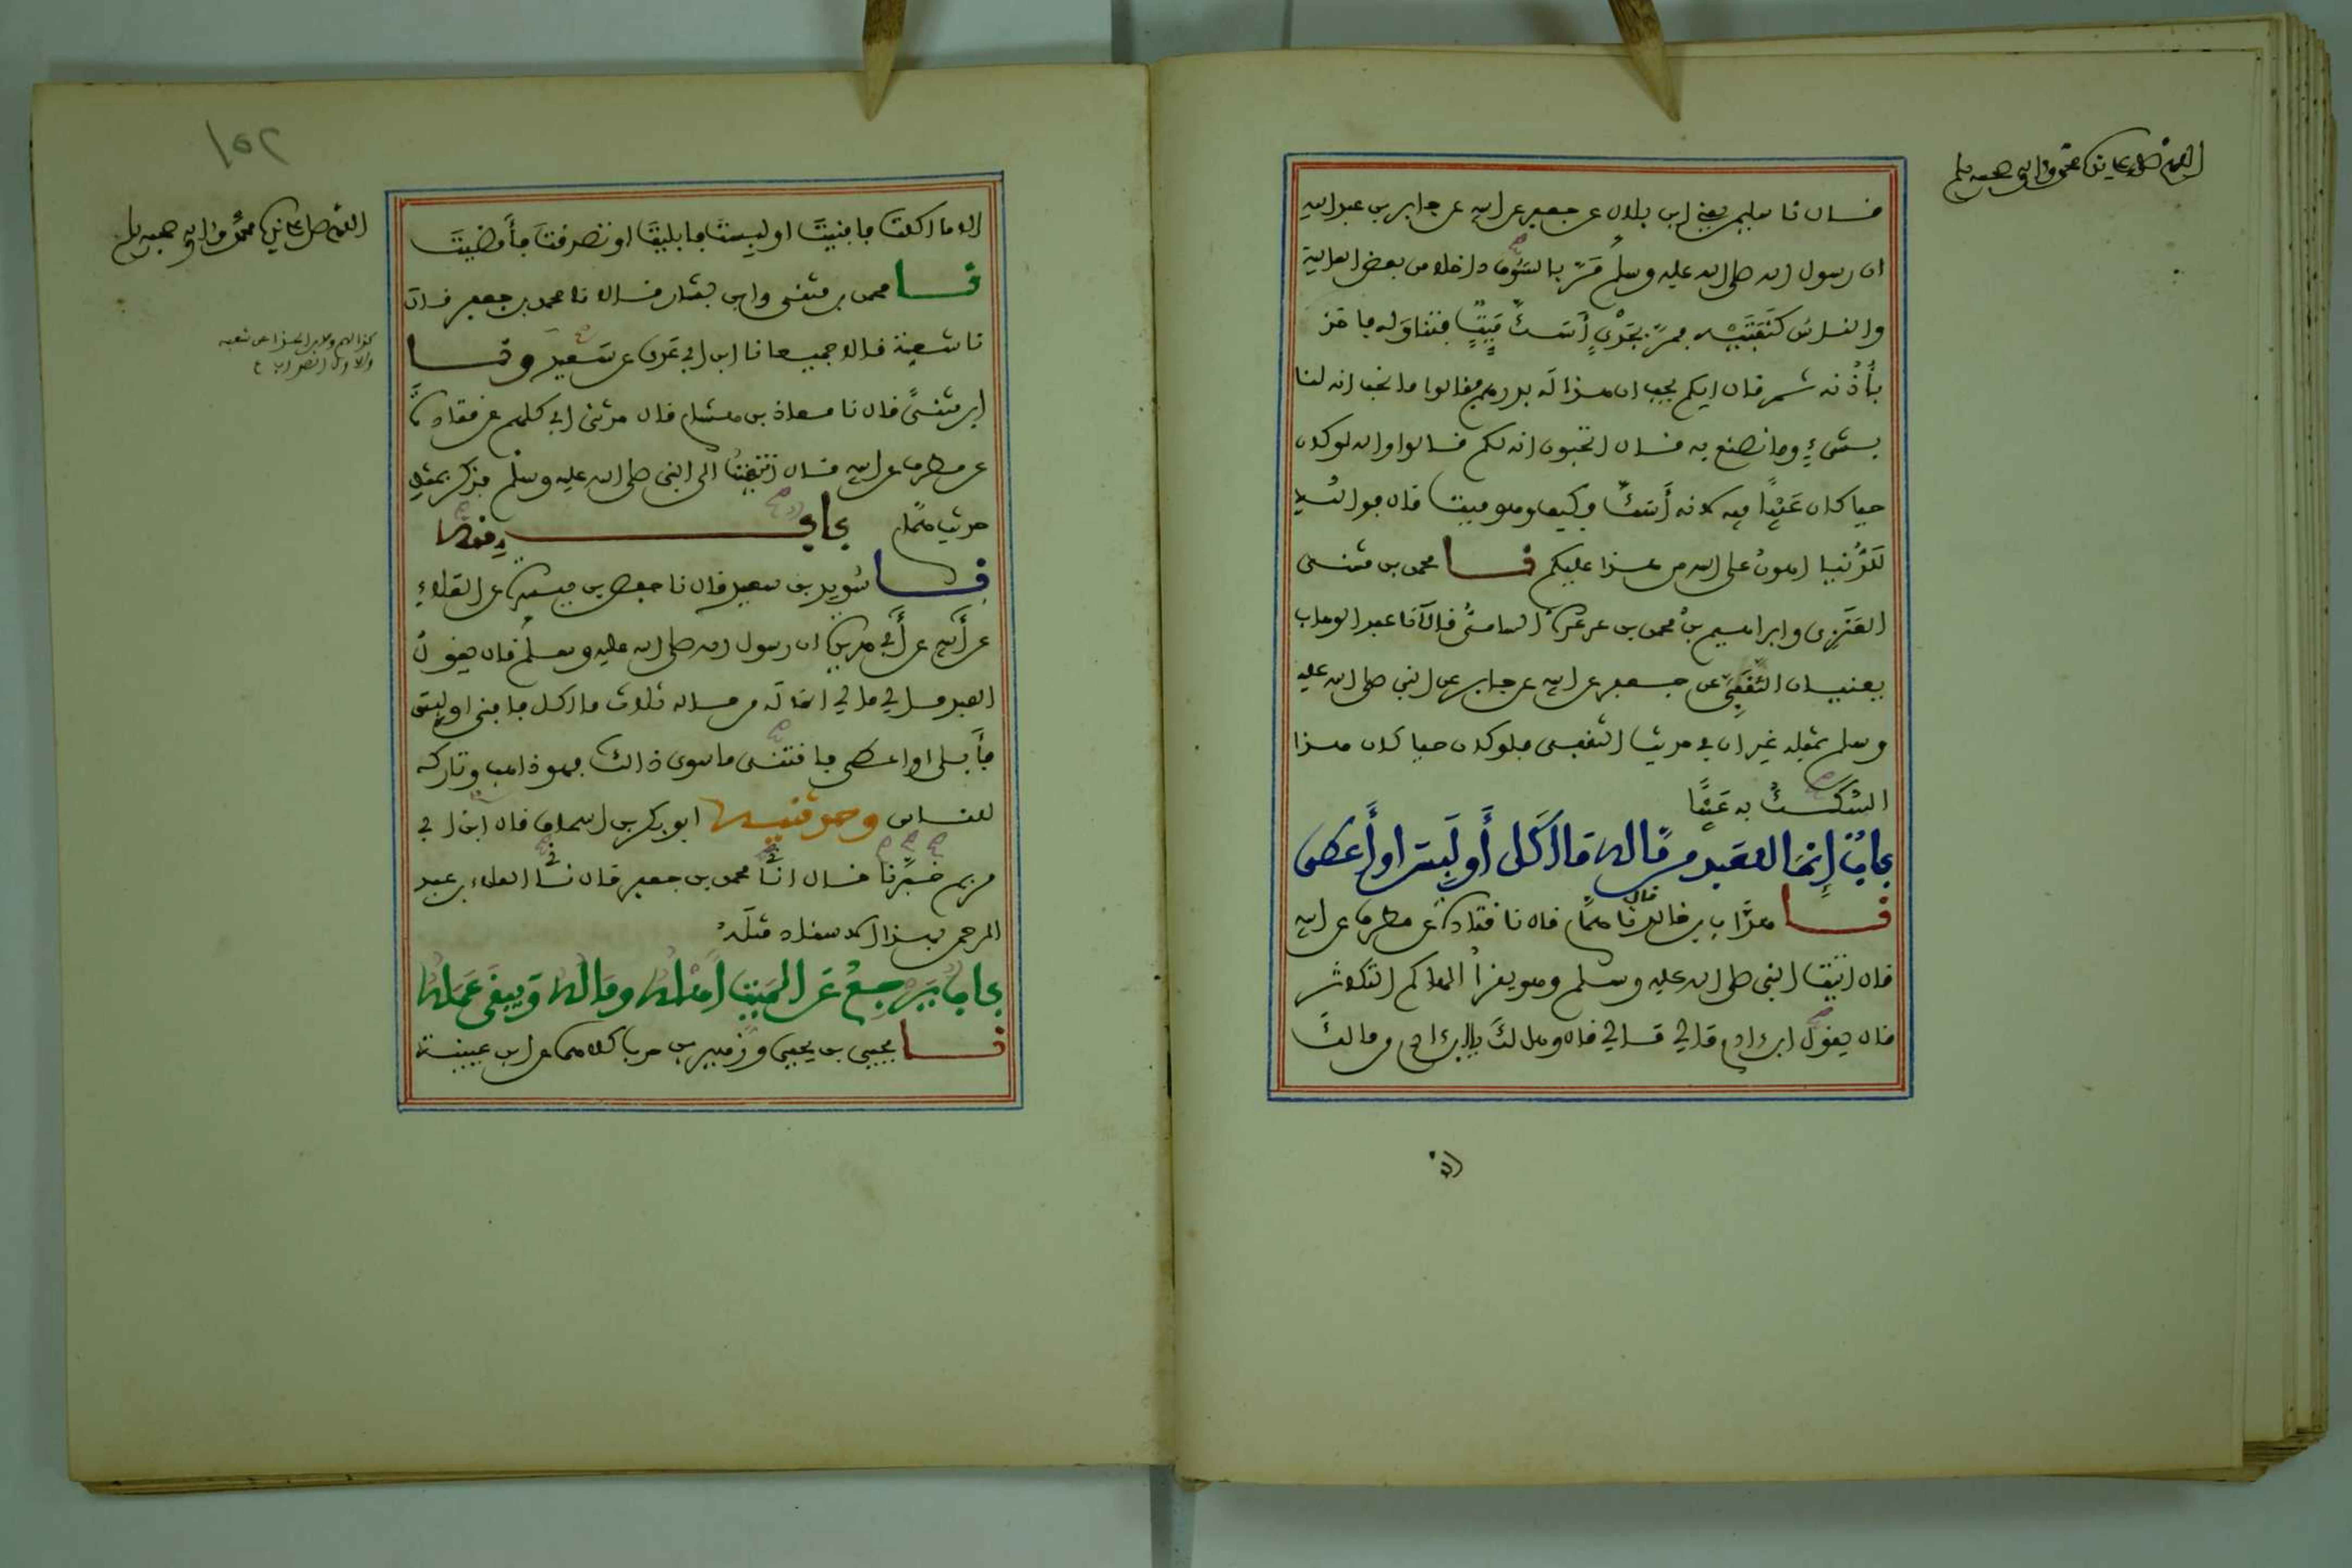 اللهم صل على نبيك محمد وءاله وصحبه وسلم
قال نا سليمن يعني ابن بلال عن جعفر عن ابيه عن جابر بن عبد الله
ان رسول الله صلى الله عليه وسلم مَرَّ بالسُّوق داخلا من بعض العالية
والناس كَنَفَتَيْه فمرَّ بجَدْيٍ أَسَكَّ مَيِّتٍ فتناوَله فاخذ
بأُذُنه ثم قال ايكم يحب ان هذا لَه بدرهم فقالوا ما نحب انه لنا
بشىءٍ وما نصنع به قال اتحبون انه لكم قالوا والله لو كان
حيا كان عَيْبًا فيه لانه أَسَكّ فكيف وهو ميت قال فوالله
لَلدُّنيا اهونُ على الله من هذا عليكم نا محمد بن مثنى
العَنَزِى وابراهيم بنُ محمد بن عرعرة السامىُّ قالا نا عبد الوهاب
يعنيان الثَّقَفِيَّ عن جعفر عن ابيه عن جابر عن النبي صلى الله عليه
وسلم بمثله غير ان في حديث الثقفى فلو كان حيا كان هذا
السَّكَكُ به عَيْبًا
بابٌ إِنمَا للعَبد من مَّاله مَا أَكَل أَو لَبِس او أَعطى
نا هدَّاب بن خالد قال نا همام قال نا قتادة عن مطرف عن ابيه
قال اتيت النبي صلى الله عليه وسلم وهو يقرأ الهاكم التكاثر
قال يقول ابن ادم مالي مالي قال وهل لك يا ابن ادم من مالكَ
الا
١٥٢
اللهم صل على نبيك محمد وءاله وصحبه وسلم
الا ما اكلتَ فافنيتَ او لبستَ فابليتَ او تصدقتَ فأَمضيتَ
نا محمد بن مثنى وابن بشار قالا نا محمد بن جعفر قال
نا شعبة قالا جميعا نا ابن ابي عَدى عن سَعيد ونا
ابن مثنىً قال نا معاذ بن هشام قال حدثني ابي كلهم عن قتادةَ
عن مطرف عن ابيه قال انتهيتُ الى النبي صلى الله عليه وسلم فذكر بمثل
حديث همام باب منه
نا سُويد بن سعيد قال نا حفص بن ميسرة عن العَلاءِ
عن أَبيه عن أَبي هريرة ان رسول الله صلى الله عليه وسلم قال يقولُ
العبد مالي مالي انما لَه من ماله ثلاث ما اكل فافنى او لبس
فأَبلى او اعطى فاقتنى ما سوى ذلك فهو ذاهب وتاركه
للناس وحدثنيه ابو بكر بن اسحاق قال ابن ابي
مريم خبَّرنا قال انا محمد بن جعفر قال نا العلاء بن عبد
الرحمن بهذا الاسناد مثلَهُ
باب يَرجعُ عَن الميت أَهلُهُ ومَالُهُ وَيبقَى عَمَلُهُ
نا يحيى بن يحيى وزُهير بن حرب كلاهما عن ابن عيينة